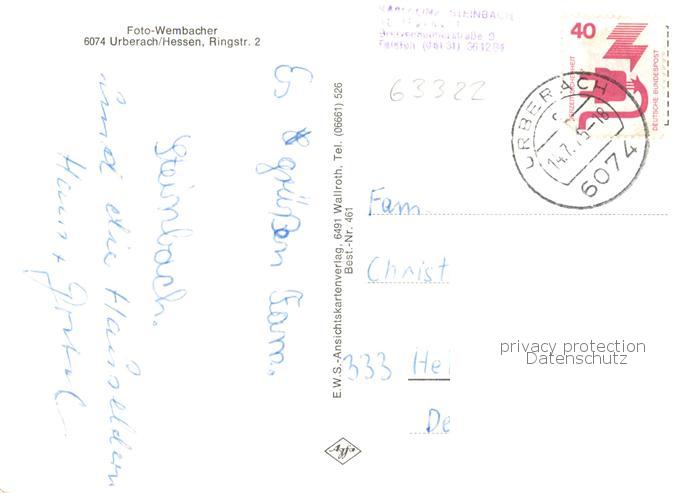 Foto-Wembacher
6074 Urberach/Hessen, Ringstr. 2
STEINBACH
63322
40
JEDERZEIT SICHERHEIT
DEUTSCHE BUNDESPOST
URBERACH
14.7.
-18
6074
Es grüßen Fam.
Steinbach.
und die Hauseltern
Hans +
E.W.S.-Ansichtskartenverlag, 6491 Wallroth, Tel. (06661) 526
Best.-Nr. 461
Fam.
Christ
333 Hei
De
privacy protection
Datenschutz
Agfa